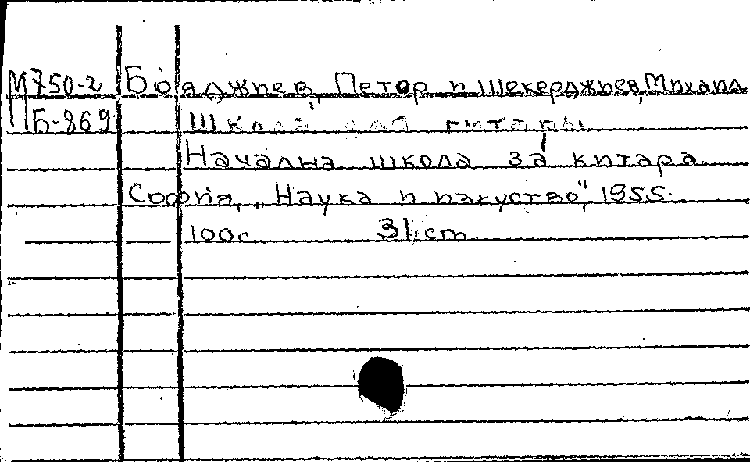 М750-2 Бояджиев, Петор и Шекерджиев, Михаил
Б-869 Школа для гитары
Начална школа за китара
София, „Наука и изкуство", 1955.
100с 31 cm